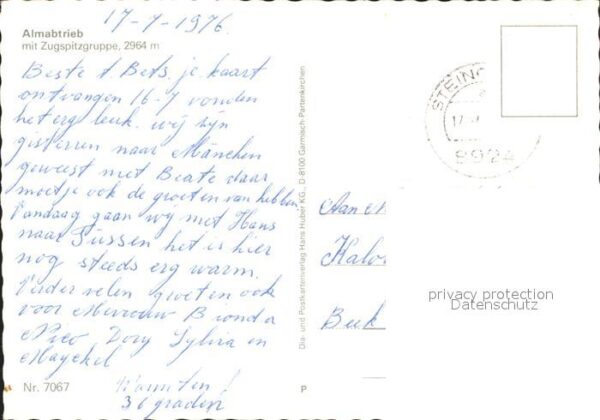 17-7-1976.
Almabtrieb
mit Zugspitzgruppe, 2964 m
Beste t Bets, je kaart
ontvangen 16-7 vonden
het erg leuk. wij zijn
gisteren naar München
geweest met Beate daar
moetje ook de groeten van hebben
Vandaag gaan wy met Hans
naar Füssen het is hier
nog steeds erg warm.
Verder velen groeten ook
voor Mevrouw
Pico Dory Sylvia en
Nr. 7067
36 graden
Dia- und Postkartenverlag Hans Huber KG., D 8100 Garmisch-Partenkirchen
P
8924
Aan
Beek
privacy protection
Datenschutz